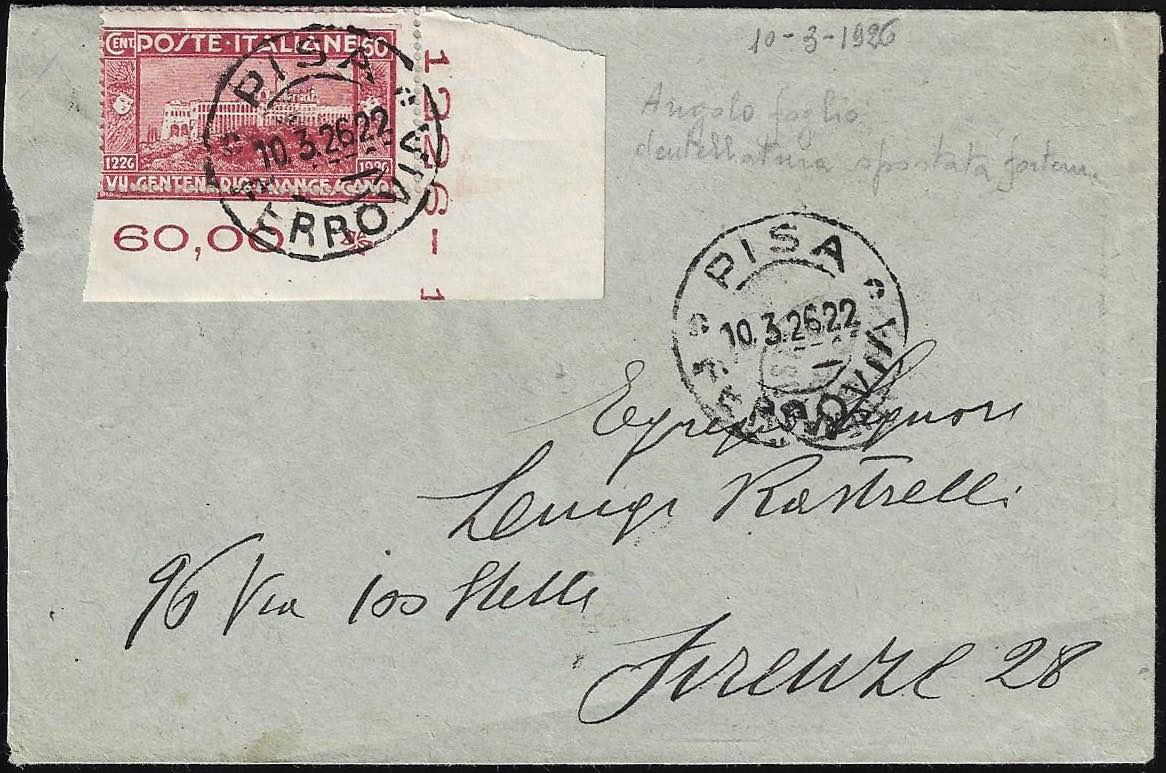 10-3-1926
CENT. POSTE·ITALIANE 60
1226 1926
VII·CENTENARIO·FRANCESCANO
60,00
1226-1
PISA
10.3.26 22
FERROVIA
Angolo foglio
dentellatura spostata fortem.
PISA
10.3.26 22
FERROVIA
Egregio Signore
Luigi Rastrelli
96 Via
Firenze 28